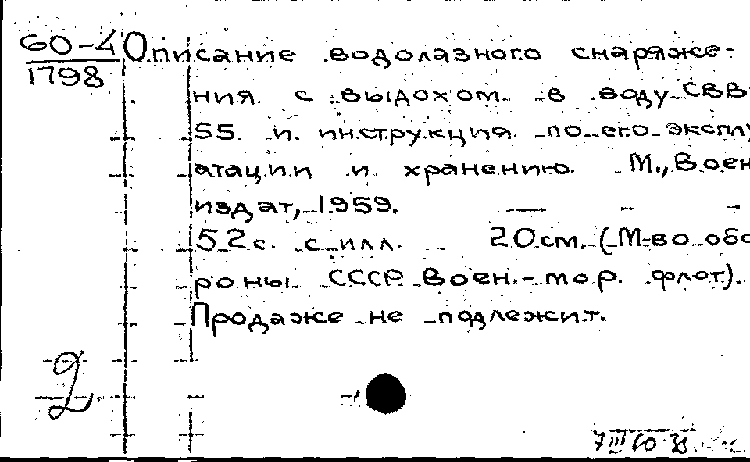 60-4 Описание водолазного снаряже-
1798
ния с выдохом в воду СВВ-
55 и инструкция по его эксплу
атации и хранению. М., Воен
издат, 1959.
52с. с илл. 20см. (М-во обо
роны СССР Воен.-мор. флот).
Продаже не подлежит.
2